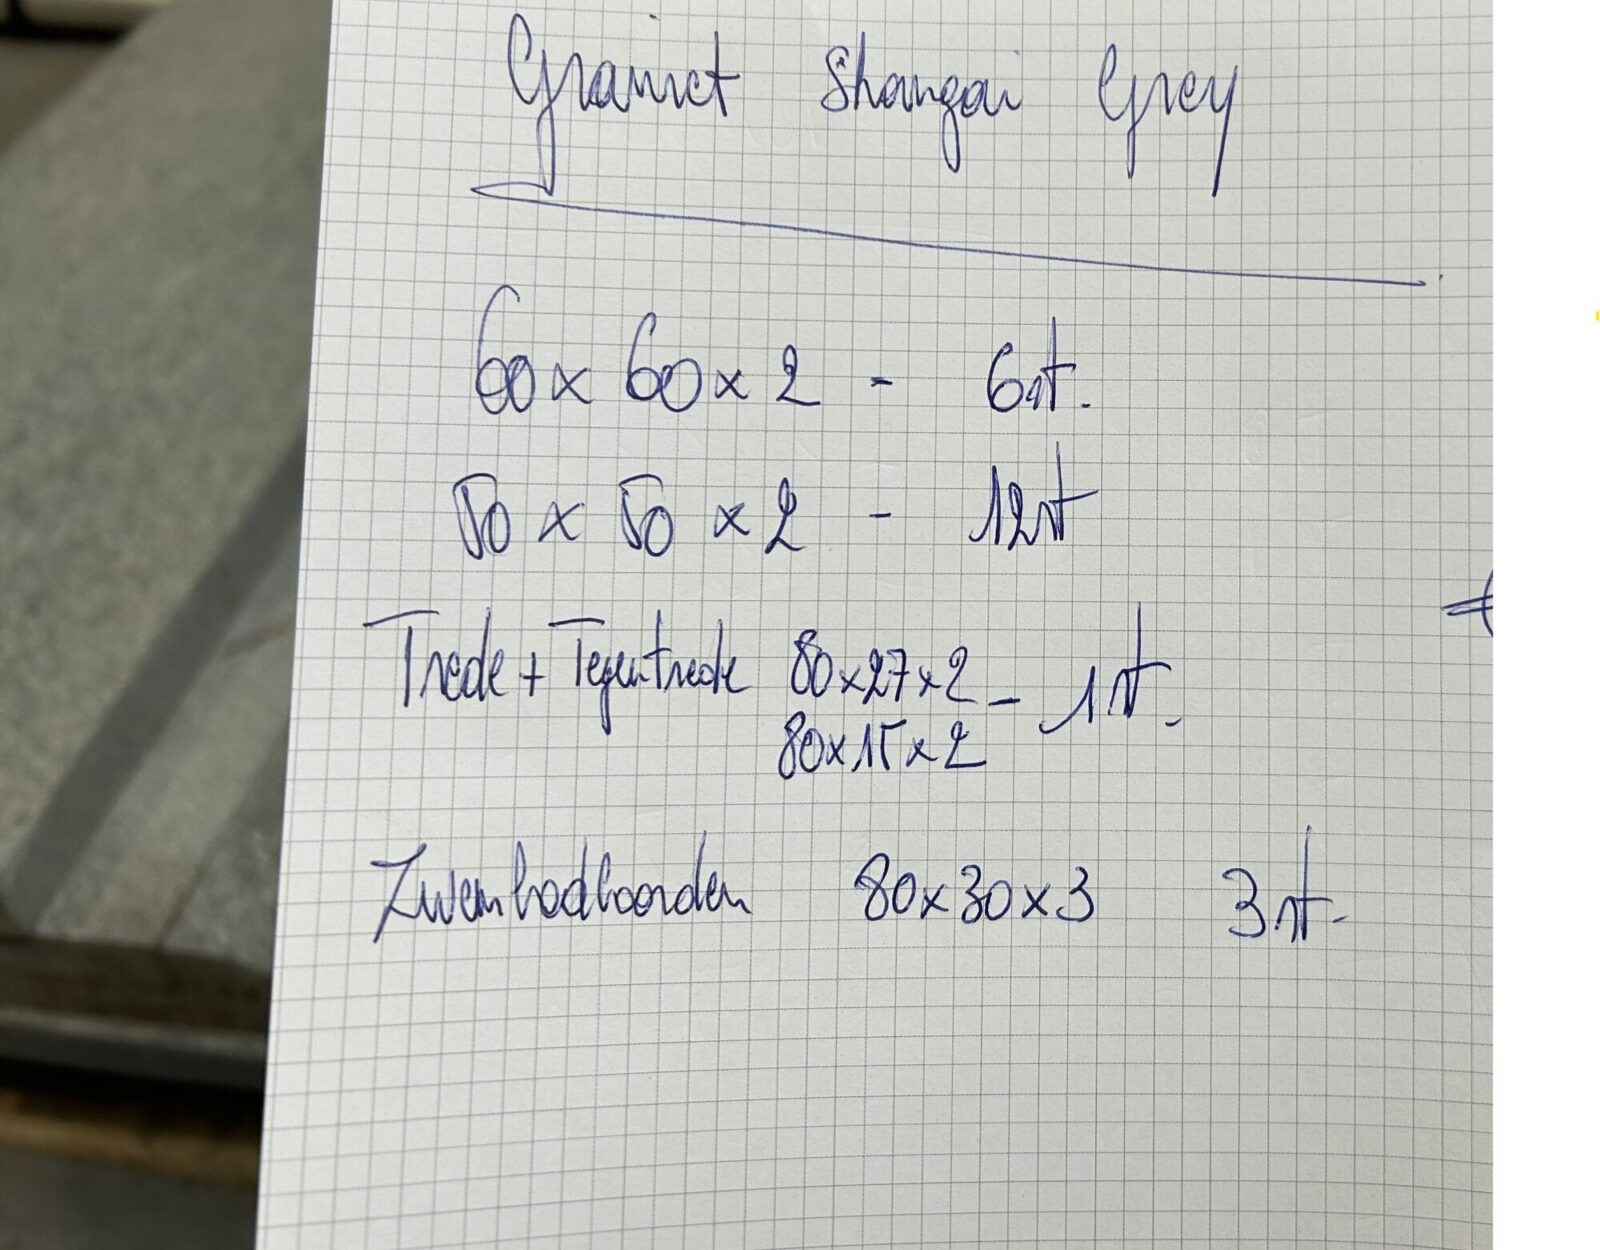 Graniet Shangai Grey
60 x 60 x 2 - 6st.
50 x 50 x 2 - 12st
Trede + Tegentrede 80x27x2 - 1st.
80x15x2
Zwembadboorden 80x30x3 3st.